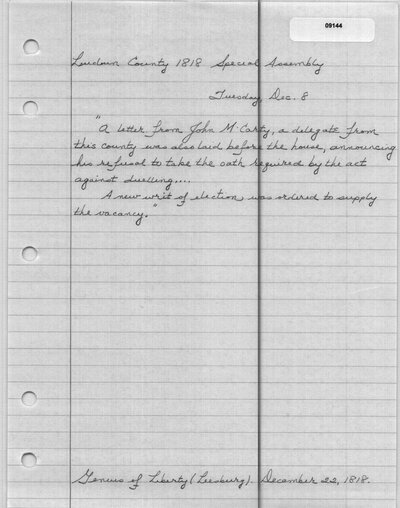 09144
Loudoun County 1818 Special Assembly
Tuesday, Dec. 8
"A letter from John McCarty, a delegate from
this county was also laid before the house, announcing
his refusal to take the oath required by the act
against duelling....
A new writ of election was ordered to supply
the vacancy."
Genius of Liberty (Leesburg). December 22, 1818.